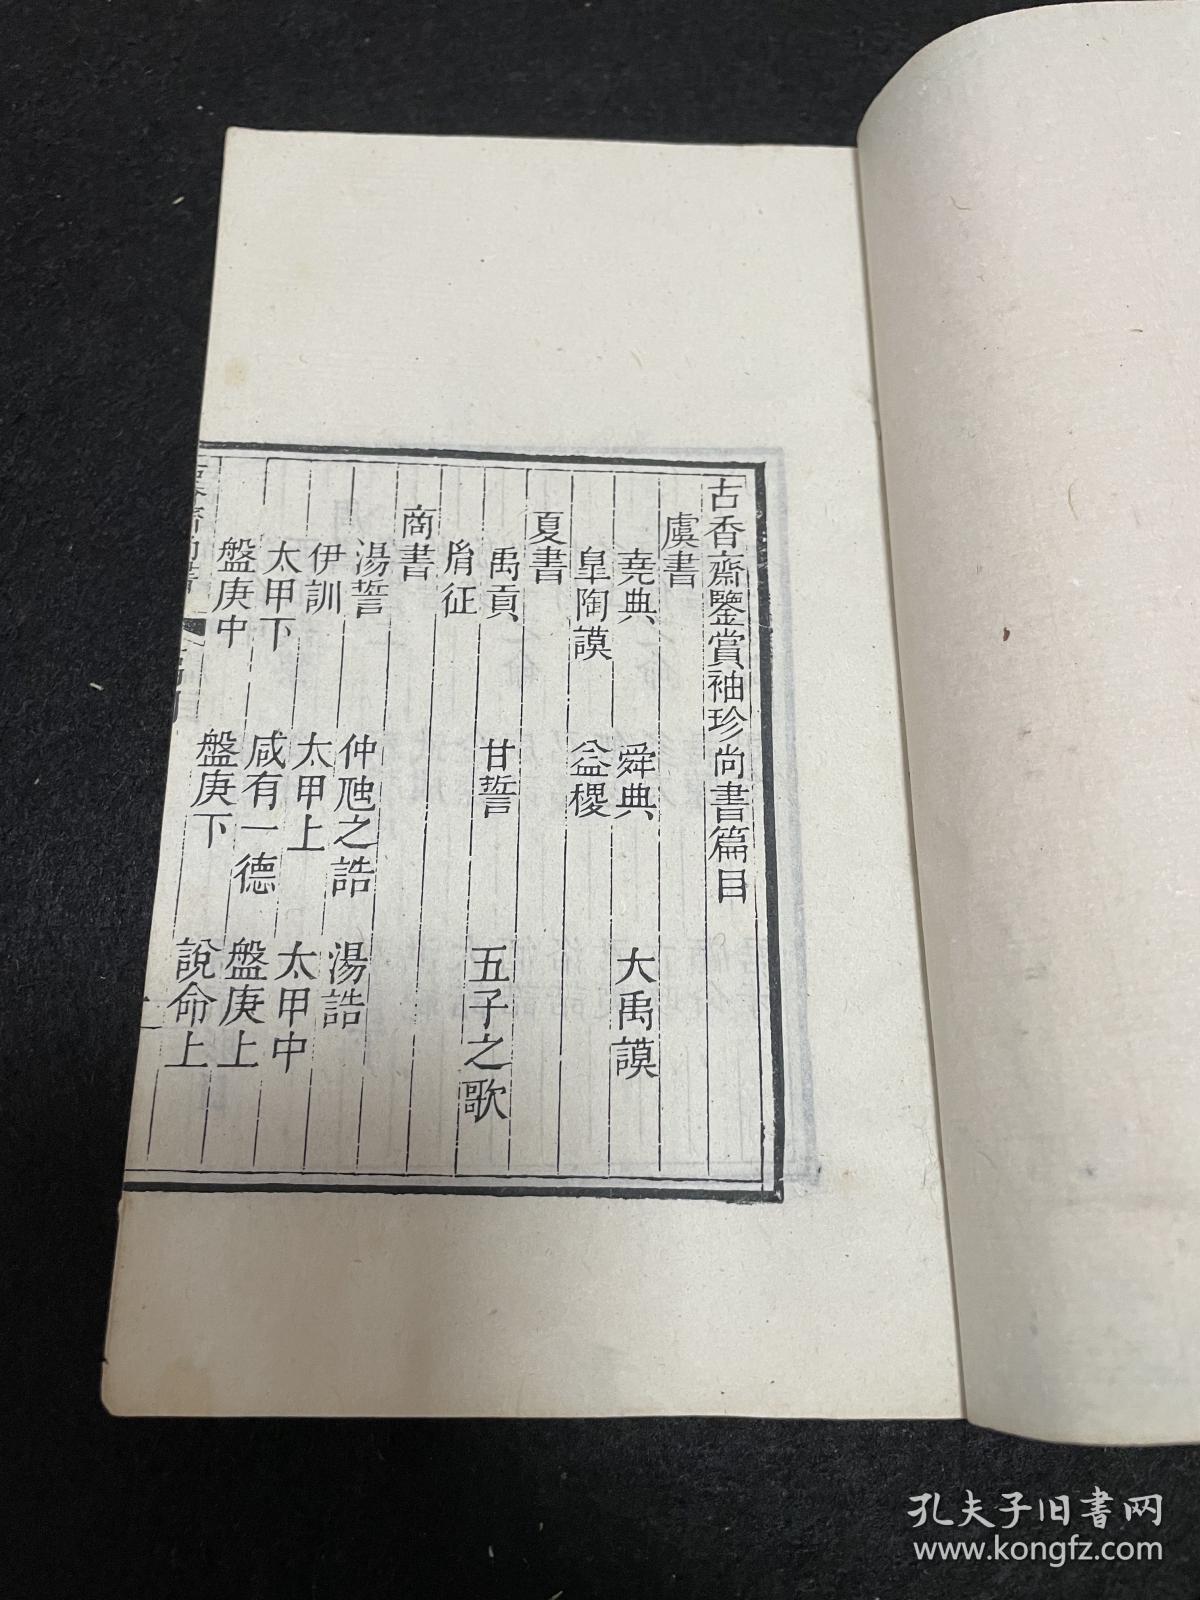 古香齋鑒賞袖珍尚書篇目
虞書
堯典 舜典 大禹謨
皐陶謨 益稷
夏書
禹貢 甘誓 五子之歌
胤征
商書
湯誓 仲虺之誥 湯誥
伊訓 太甲上 太甲中
太甲下 咸有一德 盤庚上
盤庚中 盤庚下 說命上
孔夫子旧书网
www.kongfz.com